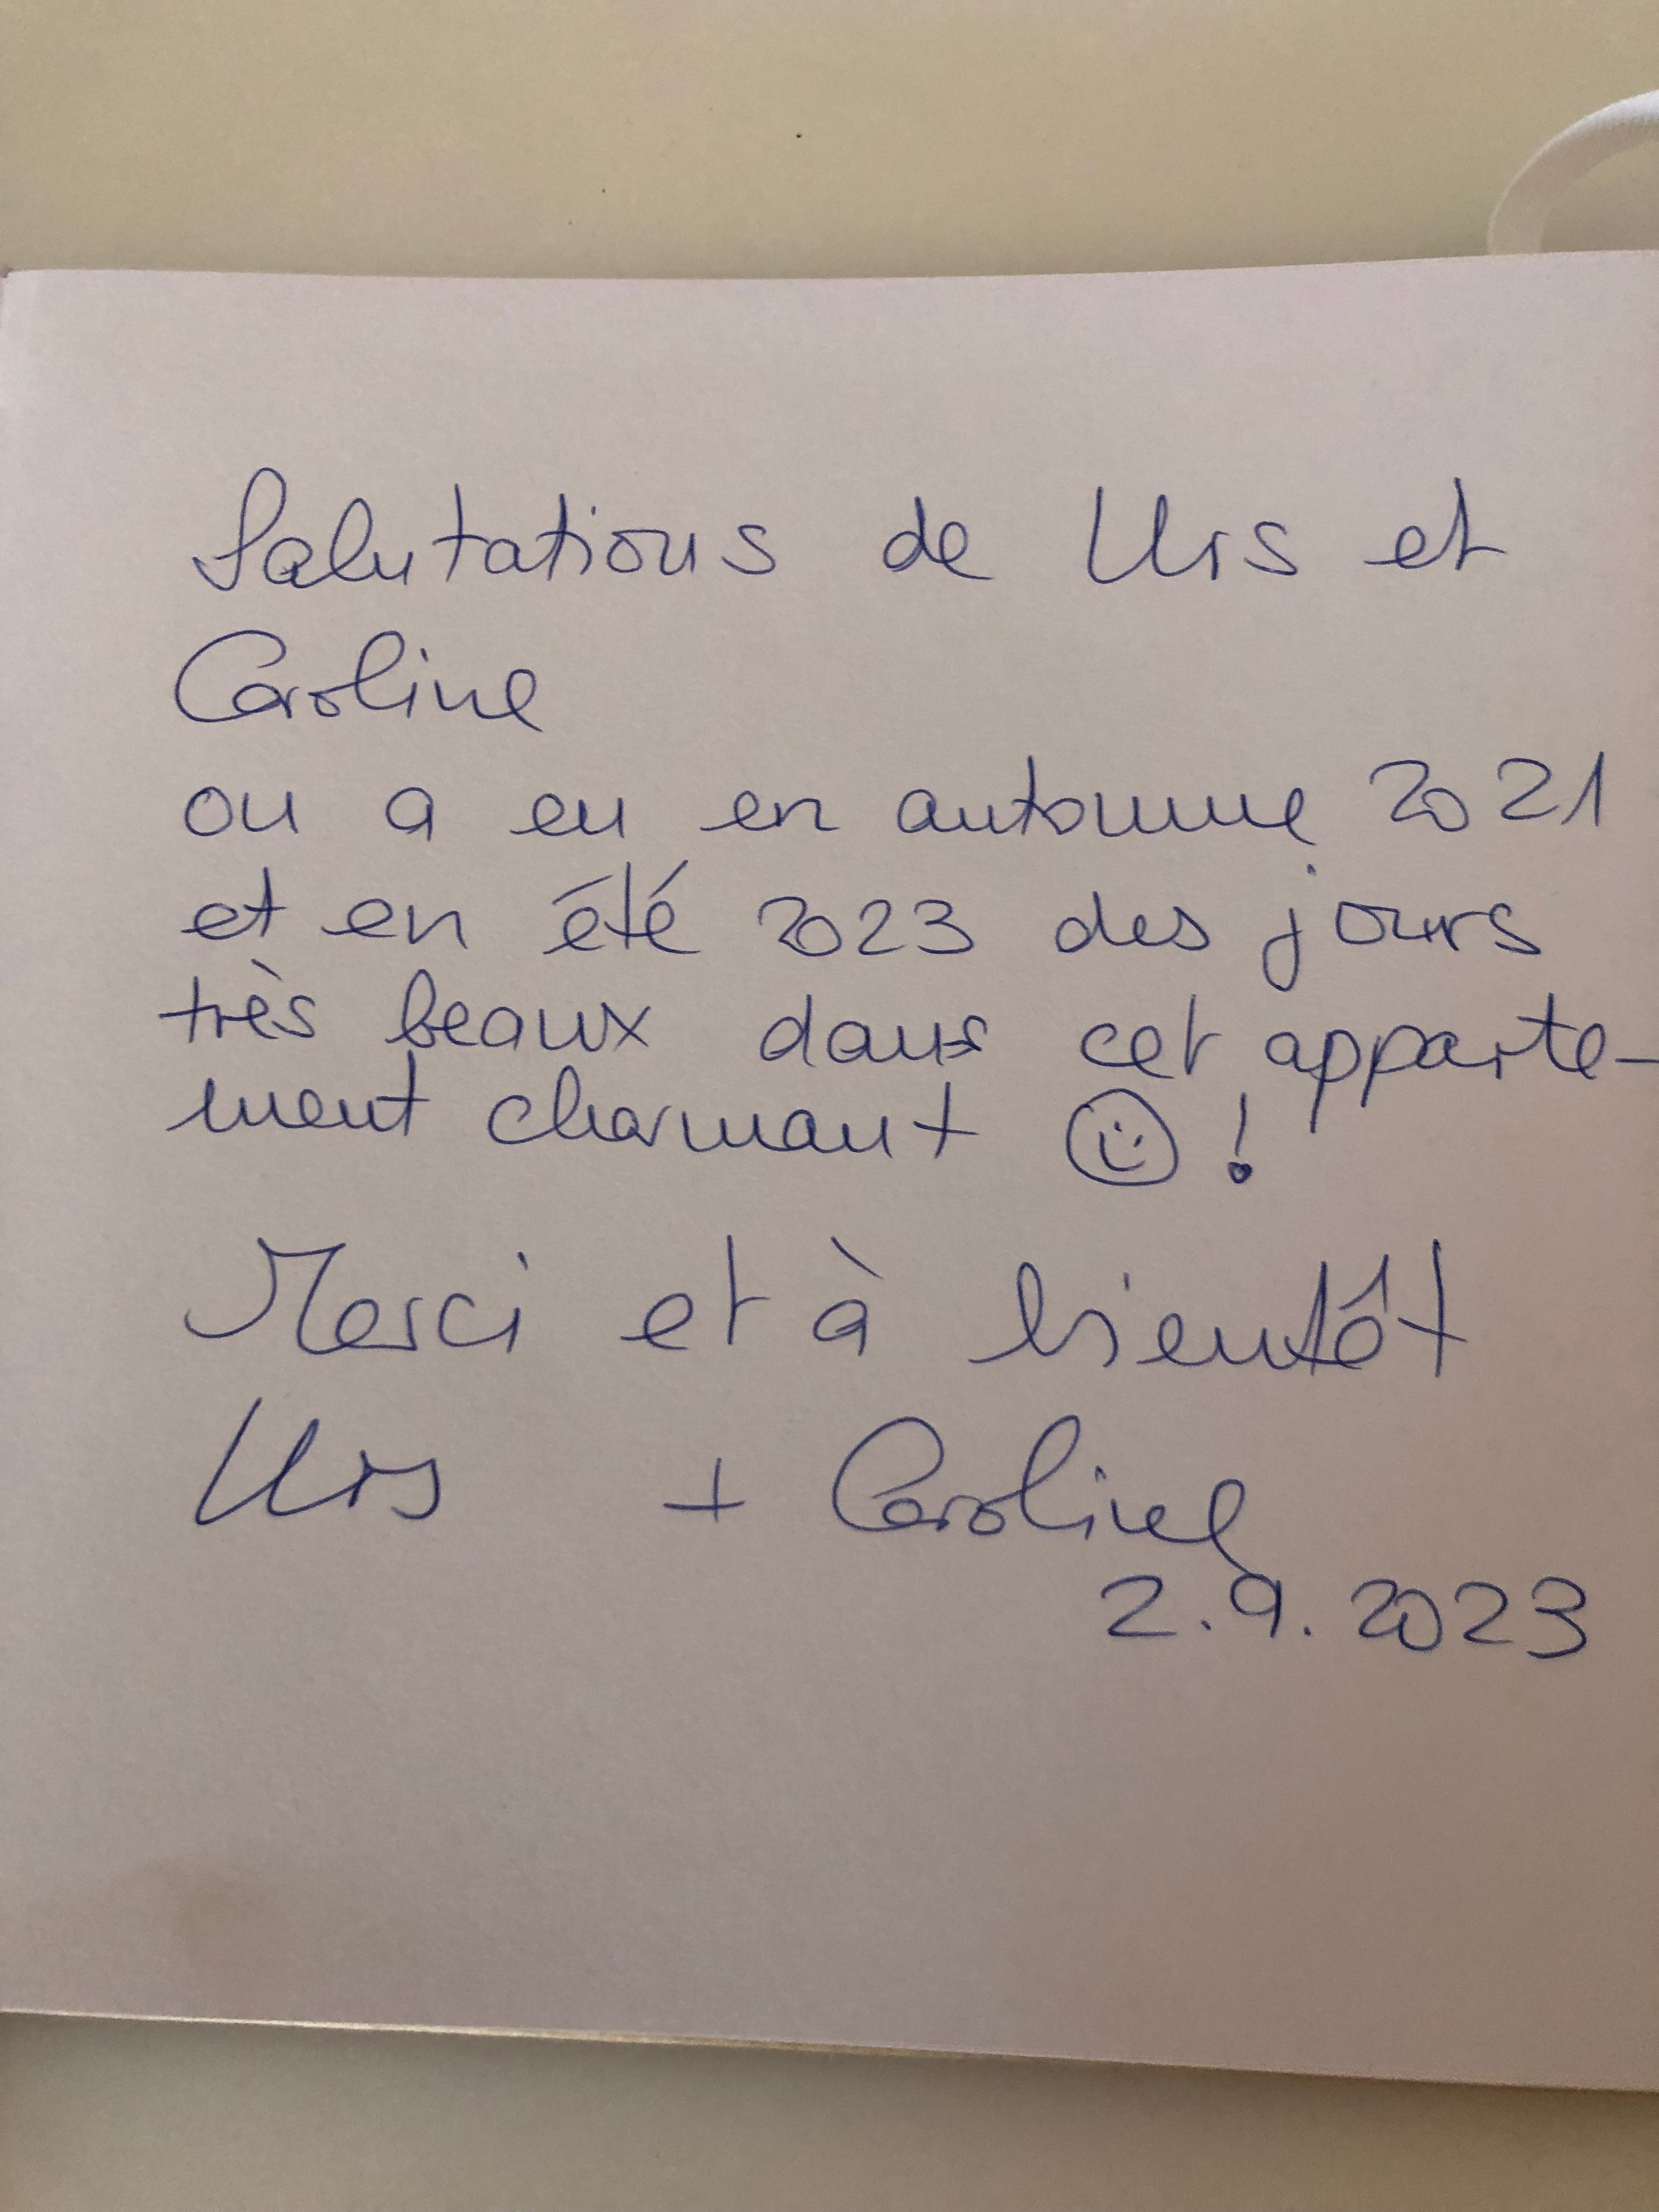 Salutations de Urs et
Caroline
on a eu en automne 2021
et en été 2023 des jours
très beaux dans cet apparte-
ment charmant ☺ !
Merci et à bientôt
Urs + Caroline
2.9.2023